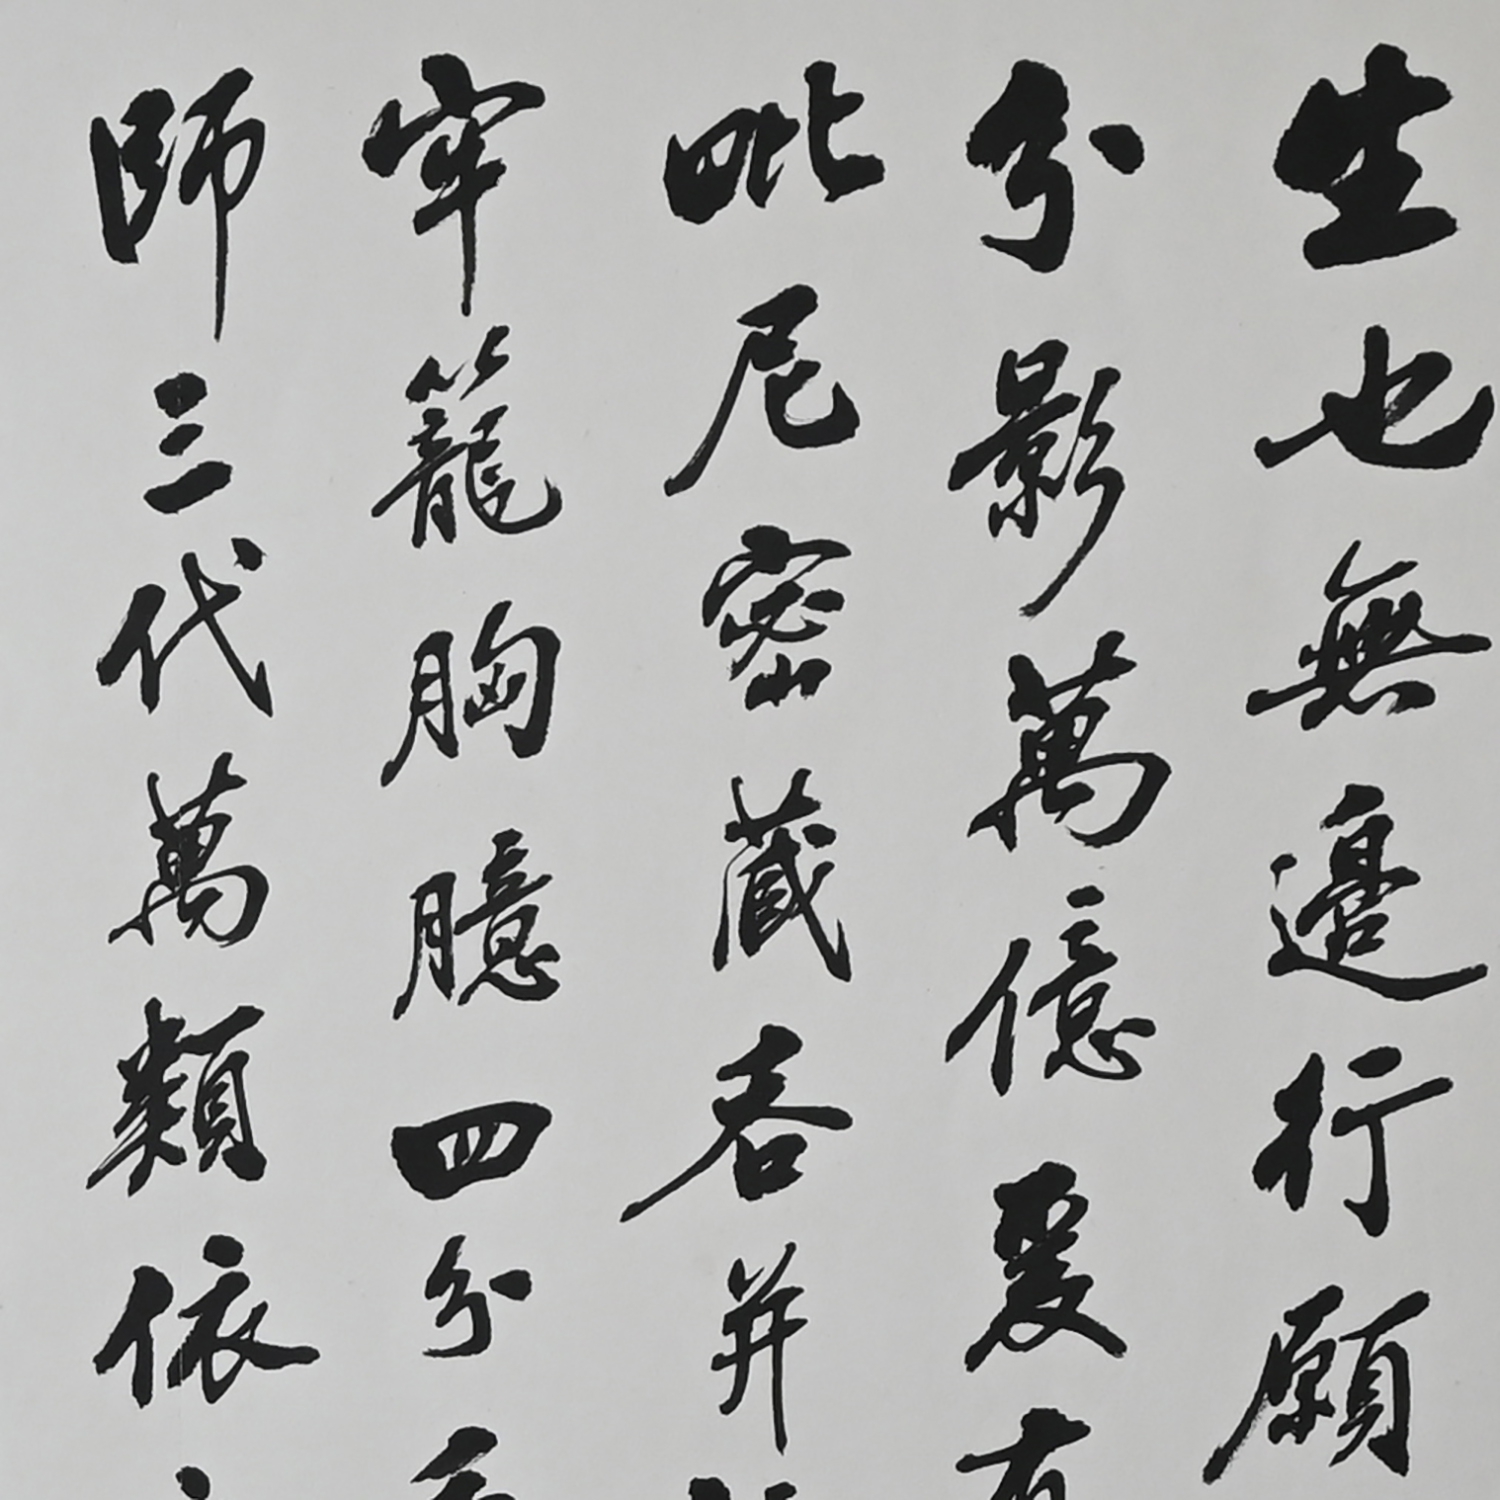 生也無邊行願
分影萬億爰有
毗尼密藏吞并
牢籠胸臆四分
師三代萬類依